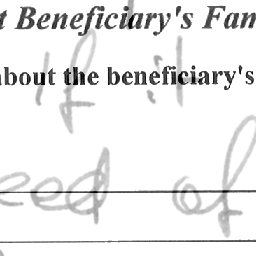 t Beneficiary's Fam
about the beneficiary's
If it
eed of